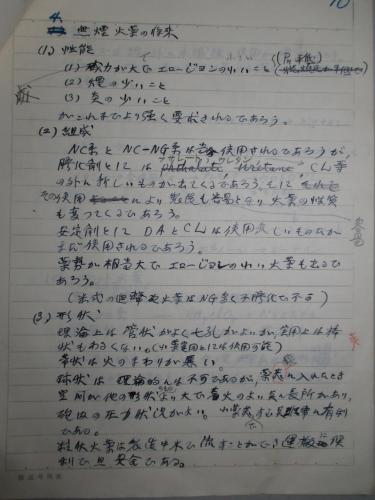 10
4. 無煙火薬の将来
(1) 性能
(1) 威力が大でエロージョンの少いこと
(2) 煙の少いこと
(3) 炎の少いこと
がこれまでより強く要求されるであろう。
(2) 組成
NC系とNC-NG系は使用されるであろうが、
フタレート、ウレタン
膠化剤としては phthalate, urétane, CL等
の外に新しいものが出てくるであろう。そして
その使用により製造も容易となり火薬の性質
も変ってくるであろう。
安定剤としてDAとCLは使用
まだ使用されるであろう。
薬勢が相当大でエロージョンの少い火薬も出るであ
ろう。
火薬はNG多く不膠化で不可)
(3) 形状
理論上は管状がよく七孔がよいが、実用上は棒
状もわるくない。(小薬量用としては使用可能)
帯状は火のまわりが悪い。
球状は理論的には不可であるが、薬室に入れたとき
空間が他の形状より大で着火のよい長所があり、
砲内の圧力状況がよい。
である。
粒状火薬は製造中水で流すことができ運搬に便
利で且安全である。